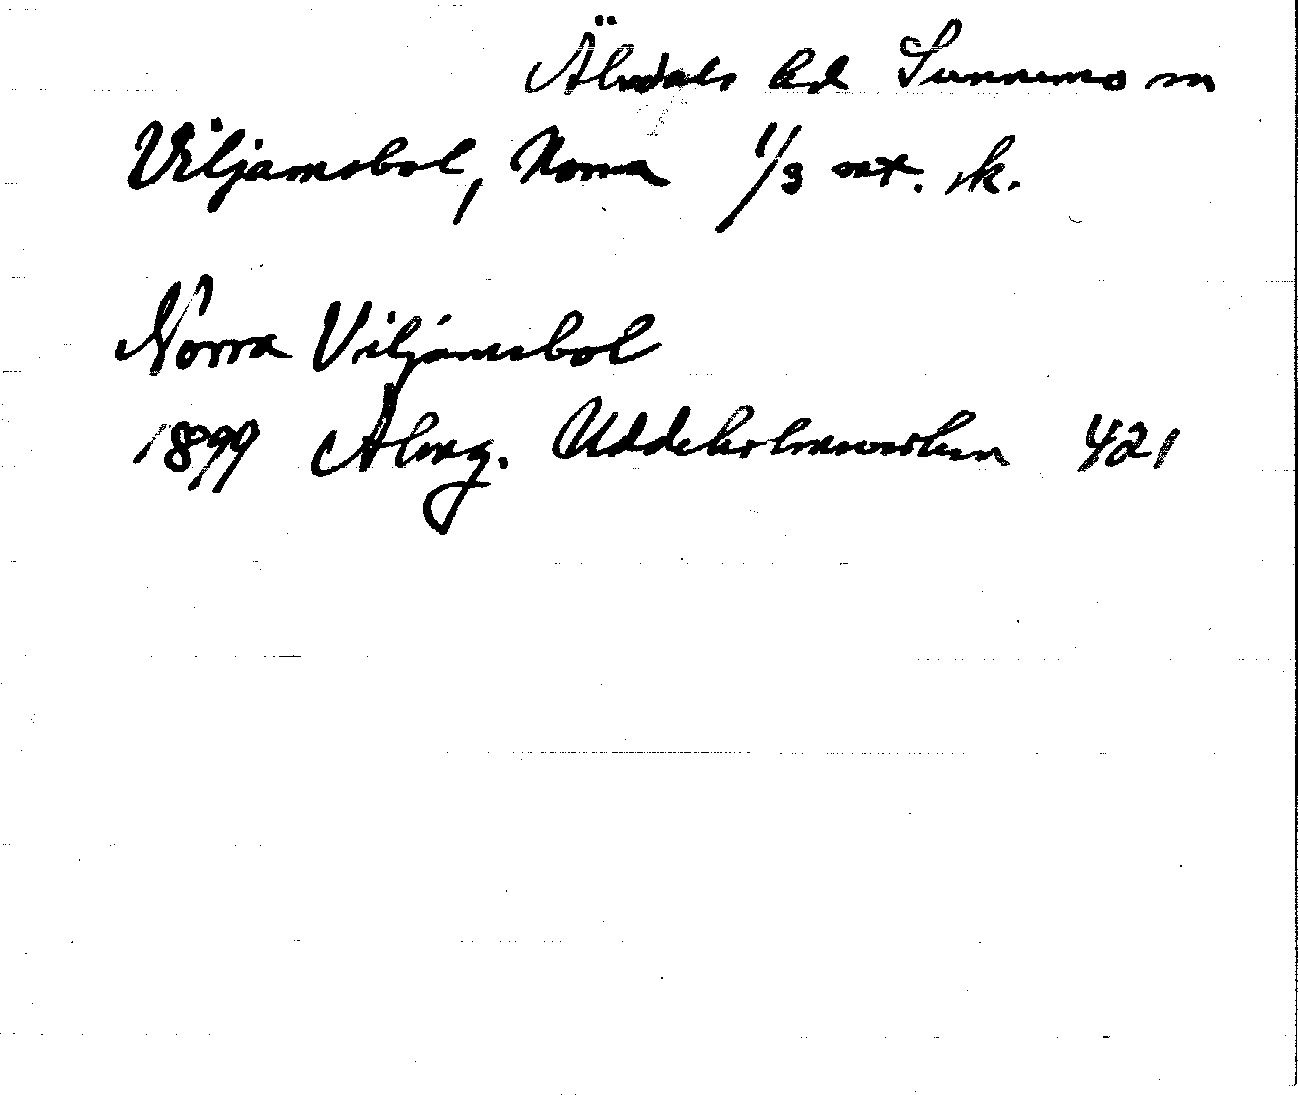 Älvdals hd Sunnemo sn
Viljamsbol, Norra 1/3 mt. sk.
Norra Viljamsbol
1899 Almq. Uddeholmsverken 421